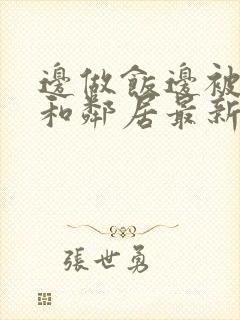 邊做飯邊被
和鄰居最新
張世勇